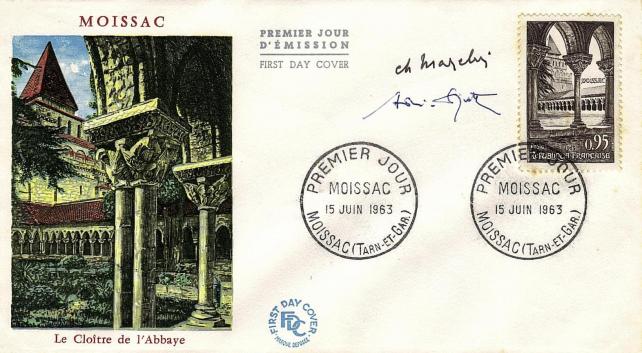 MOISSAC
PREMIER JOUR
D'ÉMISSION
FIRST DAY COVER
ch Mazelin
MOISSAC
0,95
RÉPUBLIQUE FRANÇAISE
PREMIER JOUR
MOISSAC
15 JUIN 1963
MOISSAC (TARN-ET-GAR.)
PREMIER JOUR
MOISSAC
15 JUIN 1963
MOISSAC (TARN-ET-GAR.)
Le Cloître de l'Abbaye
FIRST DAY COVER
FDC
MARQUE DÉPOSÉE